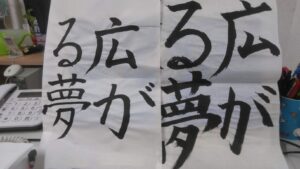 広が
る夢
広が
る夢